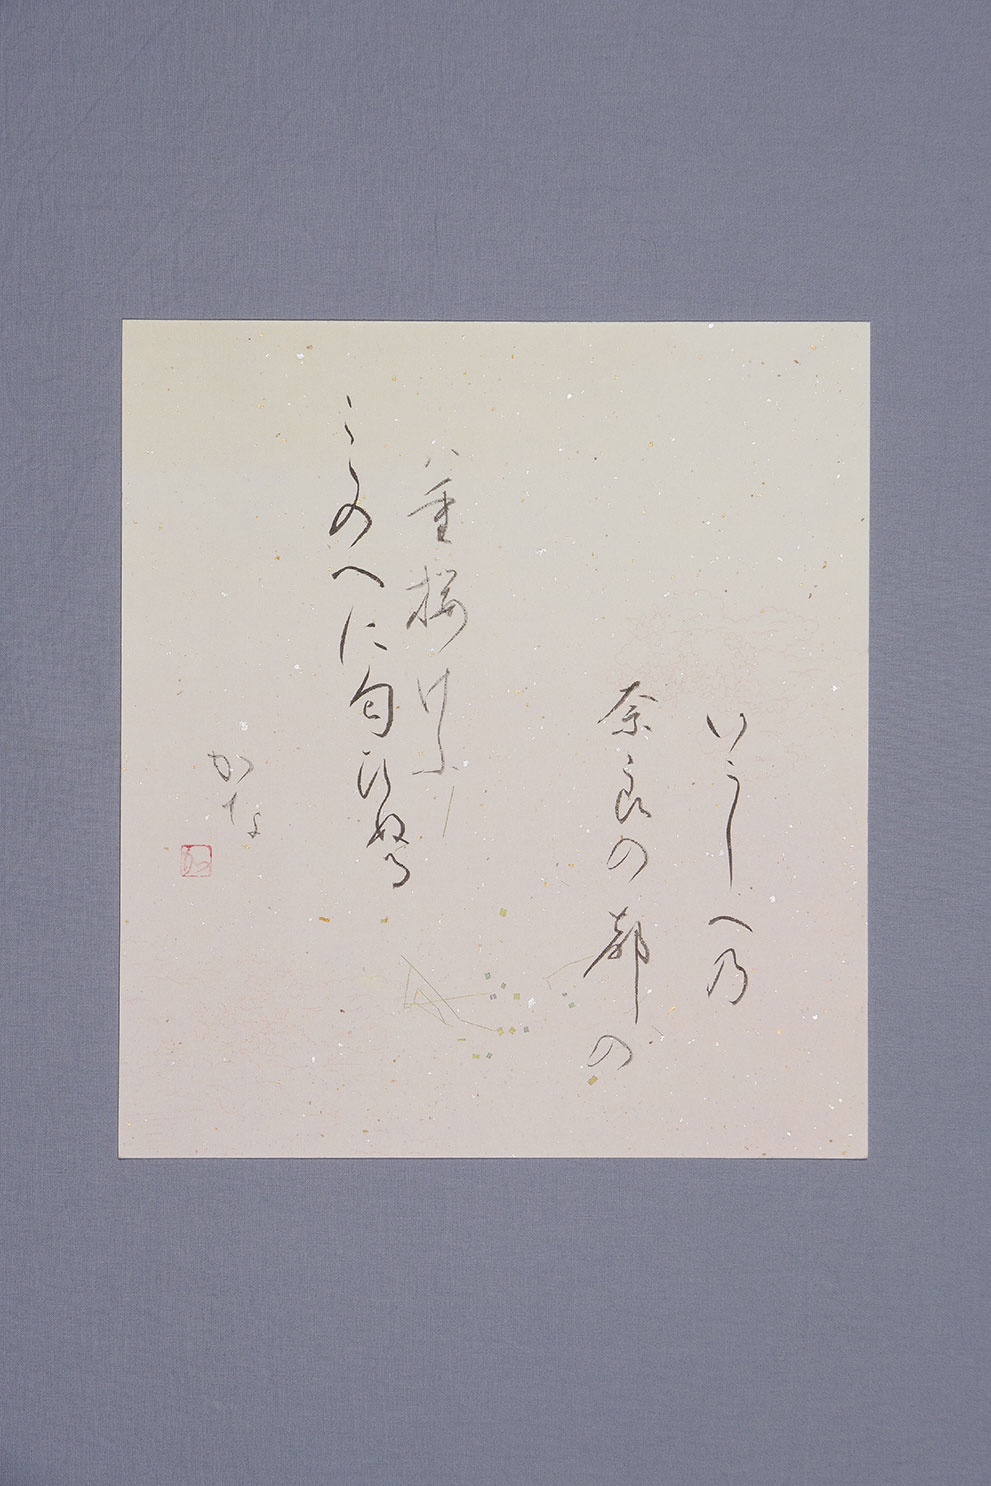 いにしへ乃
奈良の都の
八重桜けふ
こゝのへに匂ひぬる
かな